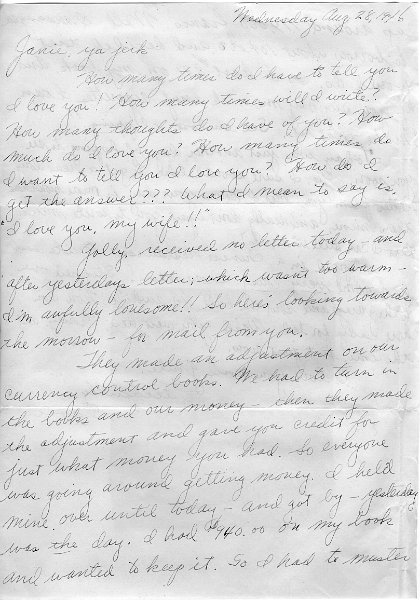 Wednesday Aug 28, 1946
Janie, ya jerk
How many times do I have to tell you
I love you! How many times will I write?
How many thoughts do I have of you? How
much do I love you? How many times do
I want to tell you I love you? How do I
get the answer??? What I mean to say is,
"I love you, my wife!!"
Golly, received no letter today - and
after yesterdays letter; which wasn't too warm -
I'm awfully lonesome!! So here's looking towards
the morrow - for mail from you.
They made an adjustment on our
currency control books. We had to turn in
the books and our money - then they made
the adjustment and gave you credit for
just what money you had. So everyone
was going around getting money. I held
mine over until today - and got by - yesterday
was the day. I had $740.00 on my book
and wanted to keep it. So I had to muster